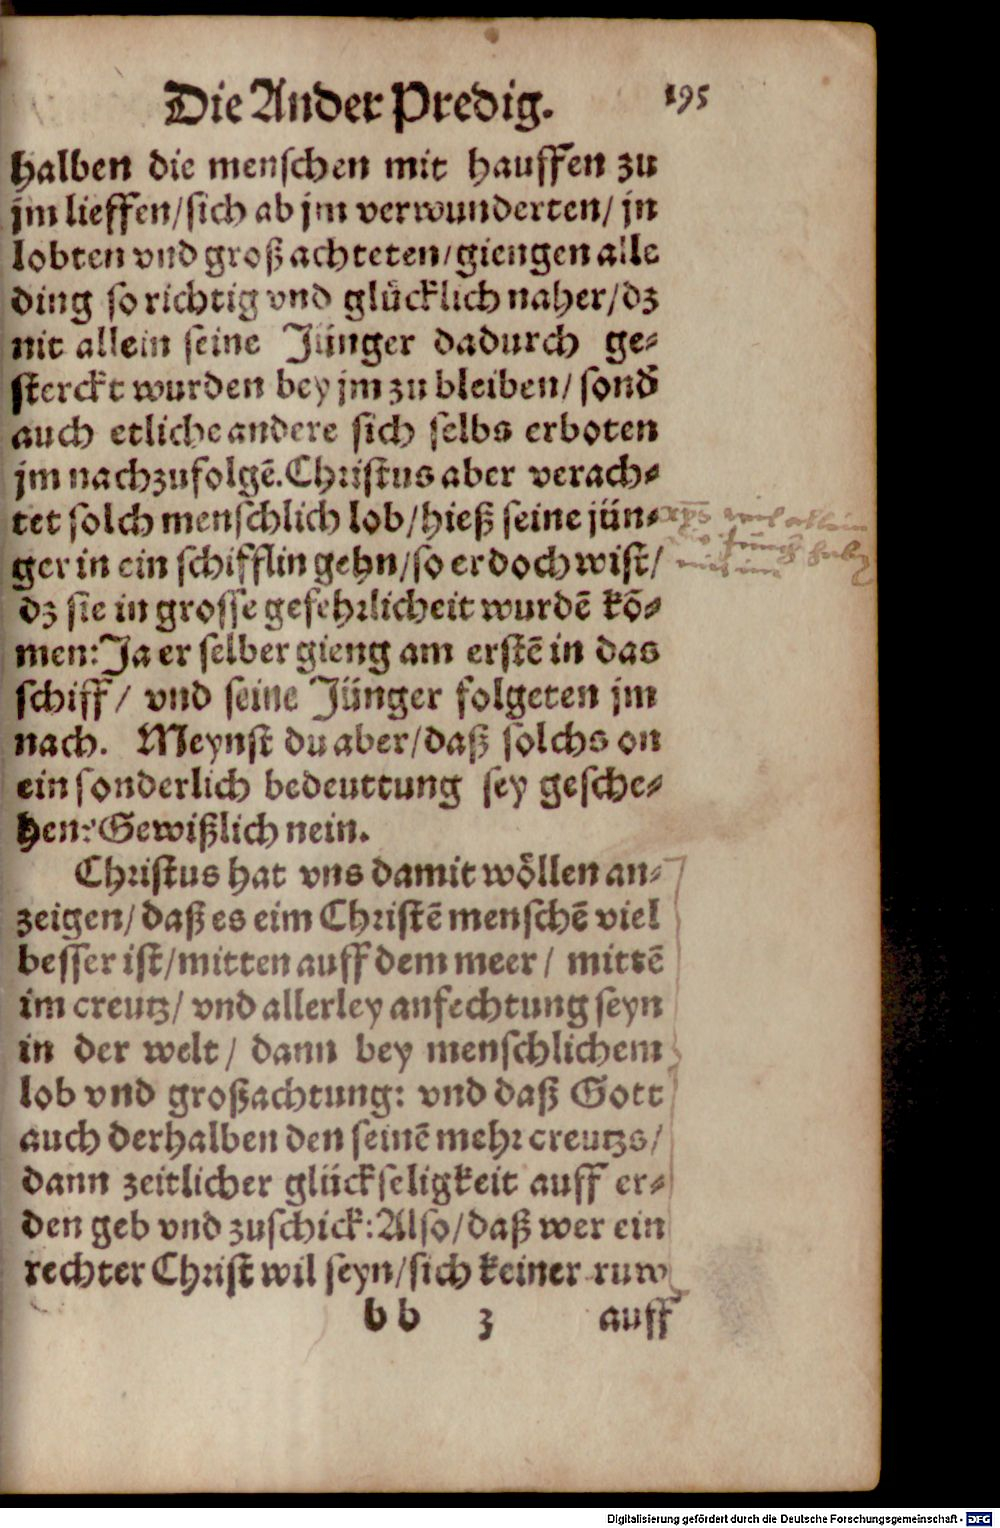 Die Ander Predig. 195
halben die menschen mit hauffen zu
jm lieffen/sich ab jm verwunderten/ jn
lobten vnd groß achteten/giengen alle
ding so richtig vnd glücklich naher/dz
nit allein seine Jünger dadurch ge-
sterckt wurden bey jm zu bleiben/ sond̄
auch etliche andere sich selbs erboten
jm nachzufolgē. Christus aber verach-
tet solch menschlich lob/hieß seine jün-
ger in ein schifflin gehn/so er doch wist/
dz sie in grosse gefehrlicheit wurdē kō-
men: Ja er selber gieng am erstē in das
schiff/ vnd seine Jünger folgeten jm
nach. Meynst du aber/daß solchs on
ein sonderlich bedeuttung sey gesche-
hen? Gewißlich nein.
Christus hat vns damit wöllen an-
zeigen/ daß es eim Christē menschē viel
besser ist/mitten auff dem meer/ mittē
im creutz/ vnd allerley anfechtung seyn
in der welt/ dann bey menschlichem
lob vnd großachtung: vnd daß Gott
auch derhalben den seinē mehr creutzs/
dann zeitlicher glückseligkeit auff er-
den geb vnd zuschick: Also/daß wer ein
rechter Christ wil seyn/sich keiner ruw
b b 3 auff
Digitalisierung gefördert durch die Deutsche Forschungsgemeinschaft - DFG